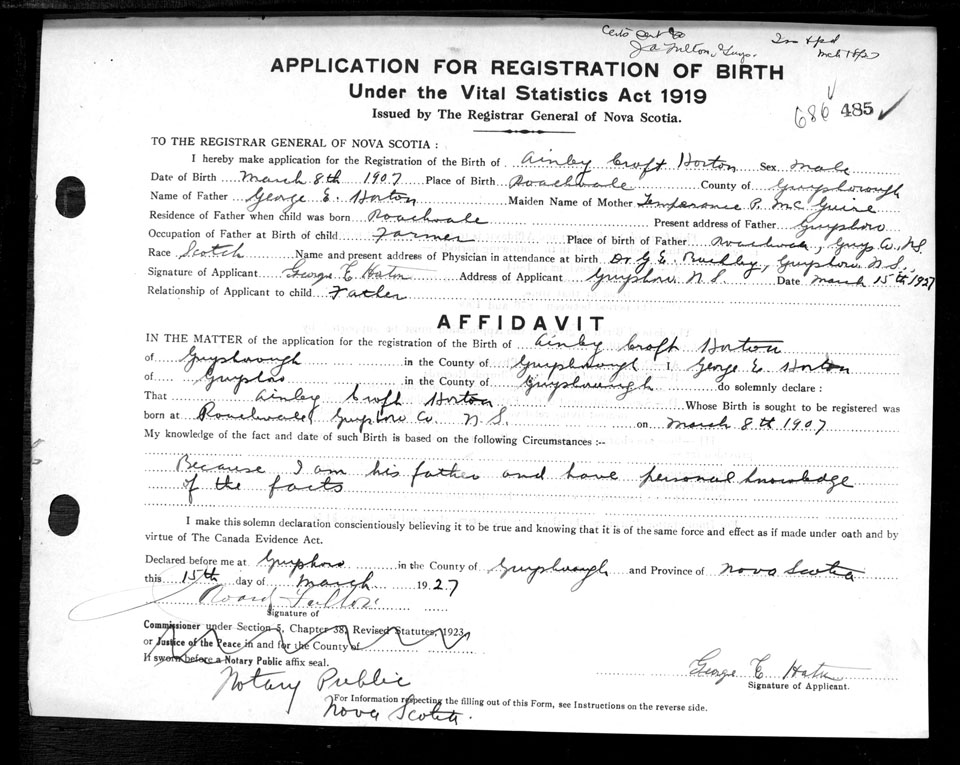 Certs sent to
J A Fulton, Guys.
APPLICATION FOR REGISTRATION OF BIRTH
Under the Vital Statistics Act 1919
Issued by The Registrar General of Nova Scotia.
686 485
TO THE REGISTRAR GENERAL OF NOVA SCOTIA :
I hereby make application for the Registration of the Birth of Ainley Croft Horton Sex Male
Date of Birth March 8th 1907 Place of Birth Roachvale County of Guysborough
Name of Father George E. Horton Maiden Name of Mother Temperance P. McGuire
Residence of Father when child was born Roachvale Present address of Father Guysboro
Occupation of Father at Birth of child Farmer Place of birth of Father Roachvale, Guys Co. N.S.
Race Scotch Name and present address of Physician in attendance at birth Dr G. E. Buckley, Guysboro N.S.
Signature of Applicant George E Horton Address of Applicant Guysboro N.S. Date March 15th 1927
Relationship of Applicant to child Father
AFFIDAVIT
IN THE MATTER of the application for the registration of the Birth of Ainley Croft Horton
of Guysborough in the County of Guysborough I, George E. Horton
of Guysboro in the County of Guysborough do solemnly declare :
That Ainley Croft Horton Whose Birth is sought to be registered was
born at Roachvale, Guysboro Co. N.S. on March 8th 1907
My knowledge of the fact and date of such Birth is based on the following Circumstances :--
Because I am his father and have personal knowledge
of the facts
I make this solemn declaration conscientiously believing it to be true and knowing that it is of the same force and effect as if made under oath and by
virtue of The Canada Evidence Act.
Declared before me at Guysboro in the County of Guysborough and Province of Nova Scotia
this 15th day of March 1927
Fulton
Signature of
Commissioner under Section 5, Chapter 38, Revised Statutes, 1923
or Justice of the Peace in and for the County of
If sworn before a Notary Public affix seal.
George E Horton
Signature of Applicant.
Notary Public
For Information respecting the filling out of this Form, see Instructions on the reverse side.
Nova Scotia.